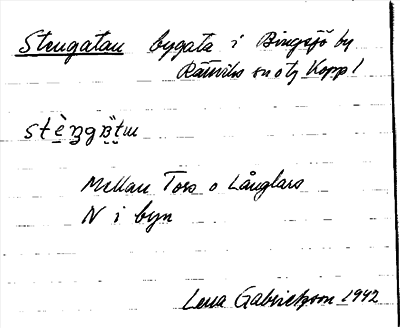 Stengatan bygata i Bingsjö by
Rättviks sn o tg Kopp l
stèngatu
Mellan Tors o Långlars
N i byn
Lena Gabrielsson 1942